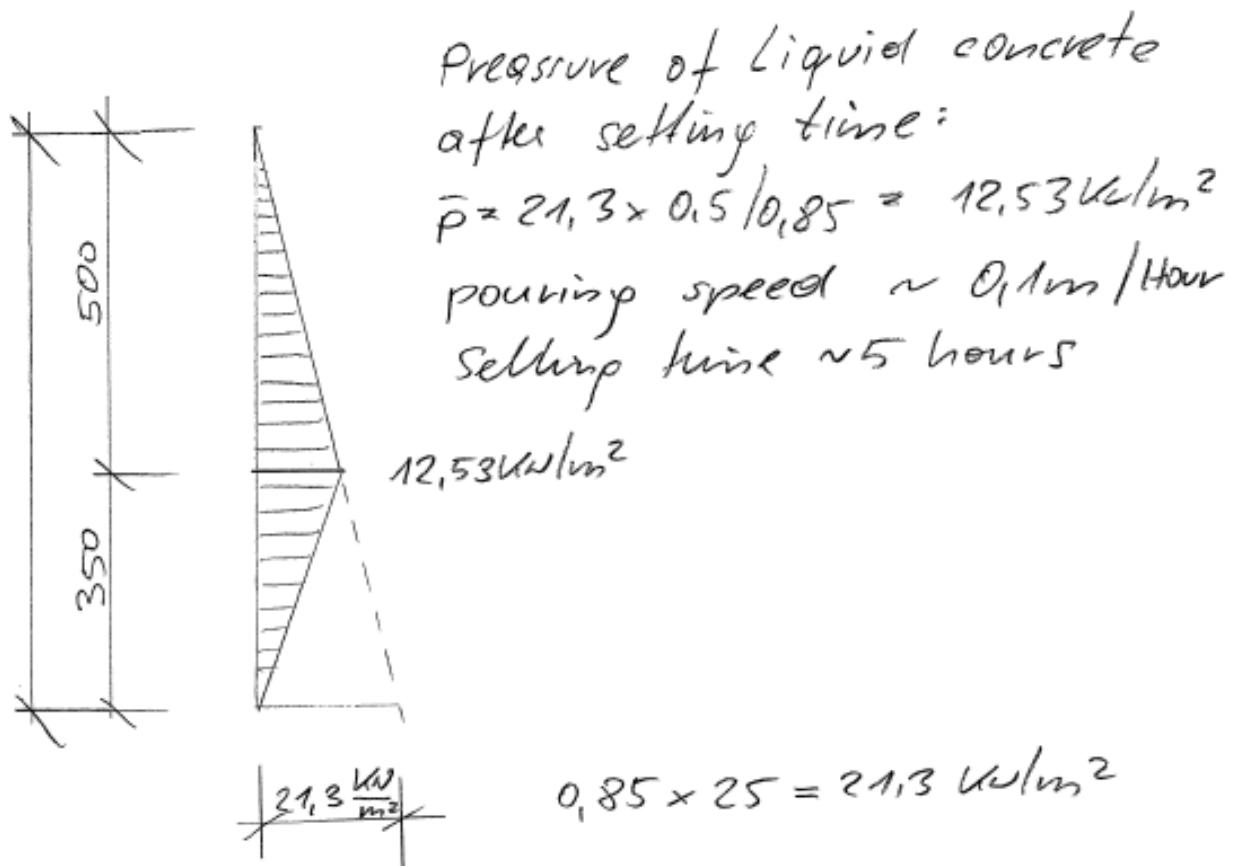 Preassure of Liquid concrete
after setting time:
p̄ = 21,3 x 0.5/0,85 = 12,53 KN/m²
pouring speed ~ 0,1m/Hour
Setting time ~5 hours
500
12,53 KN/m²
350
21,3 KN/m²
0,85 x 25 = 21,3 KN/m²